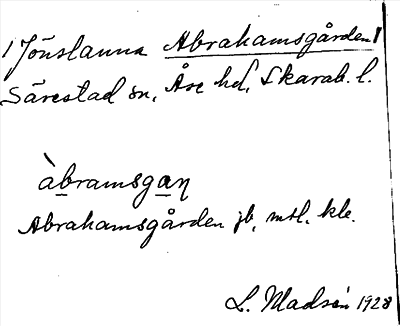 Jönslanna Abrahamsgården
Särestad sn, Åse hd, Skarab. l.
àbramsgaη
Abrahamsgården jb, mtl. kle.
L. Madsén 1928